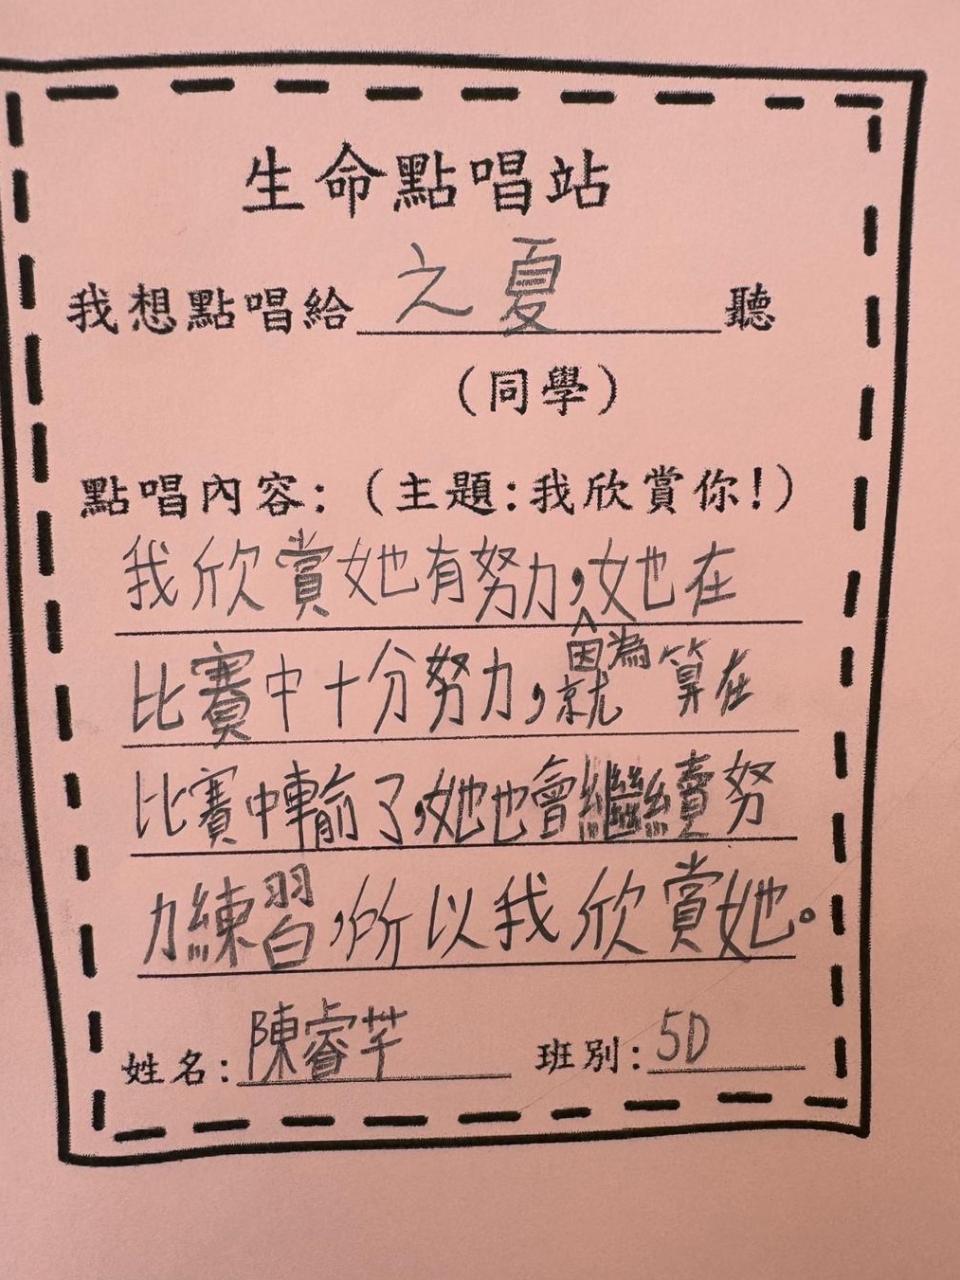 生命點唱站
我想點唱給之夏聽
(同學)
點唱內容:(主題:我欣賞你!)
我欣賞她有努力,她在
比賽中十分努力,因為就算在
比賽中輸了,她也會繼續努
力練習,所以我欣賞她。
姓名:陳睿芊 班別:5D